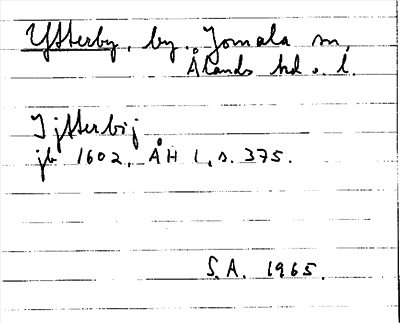 Ytterby, by. Jomala sn,
Ålands hd o. l.
I ytterbij
jb 1602. ÅH 1, s. 375.
S.A. 1965.